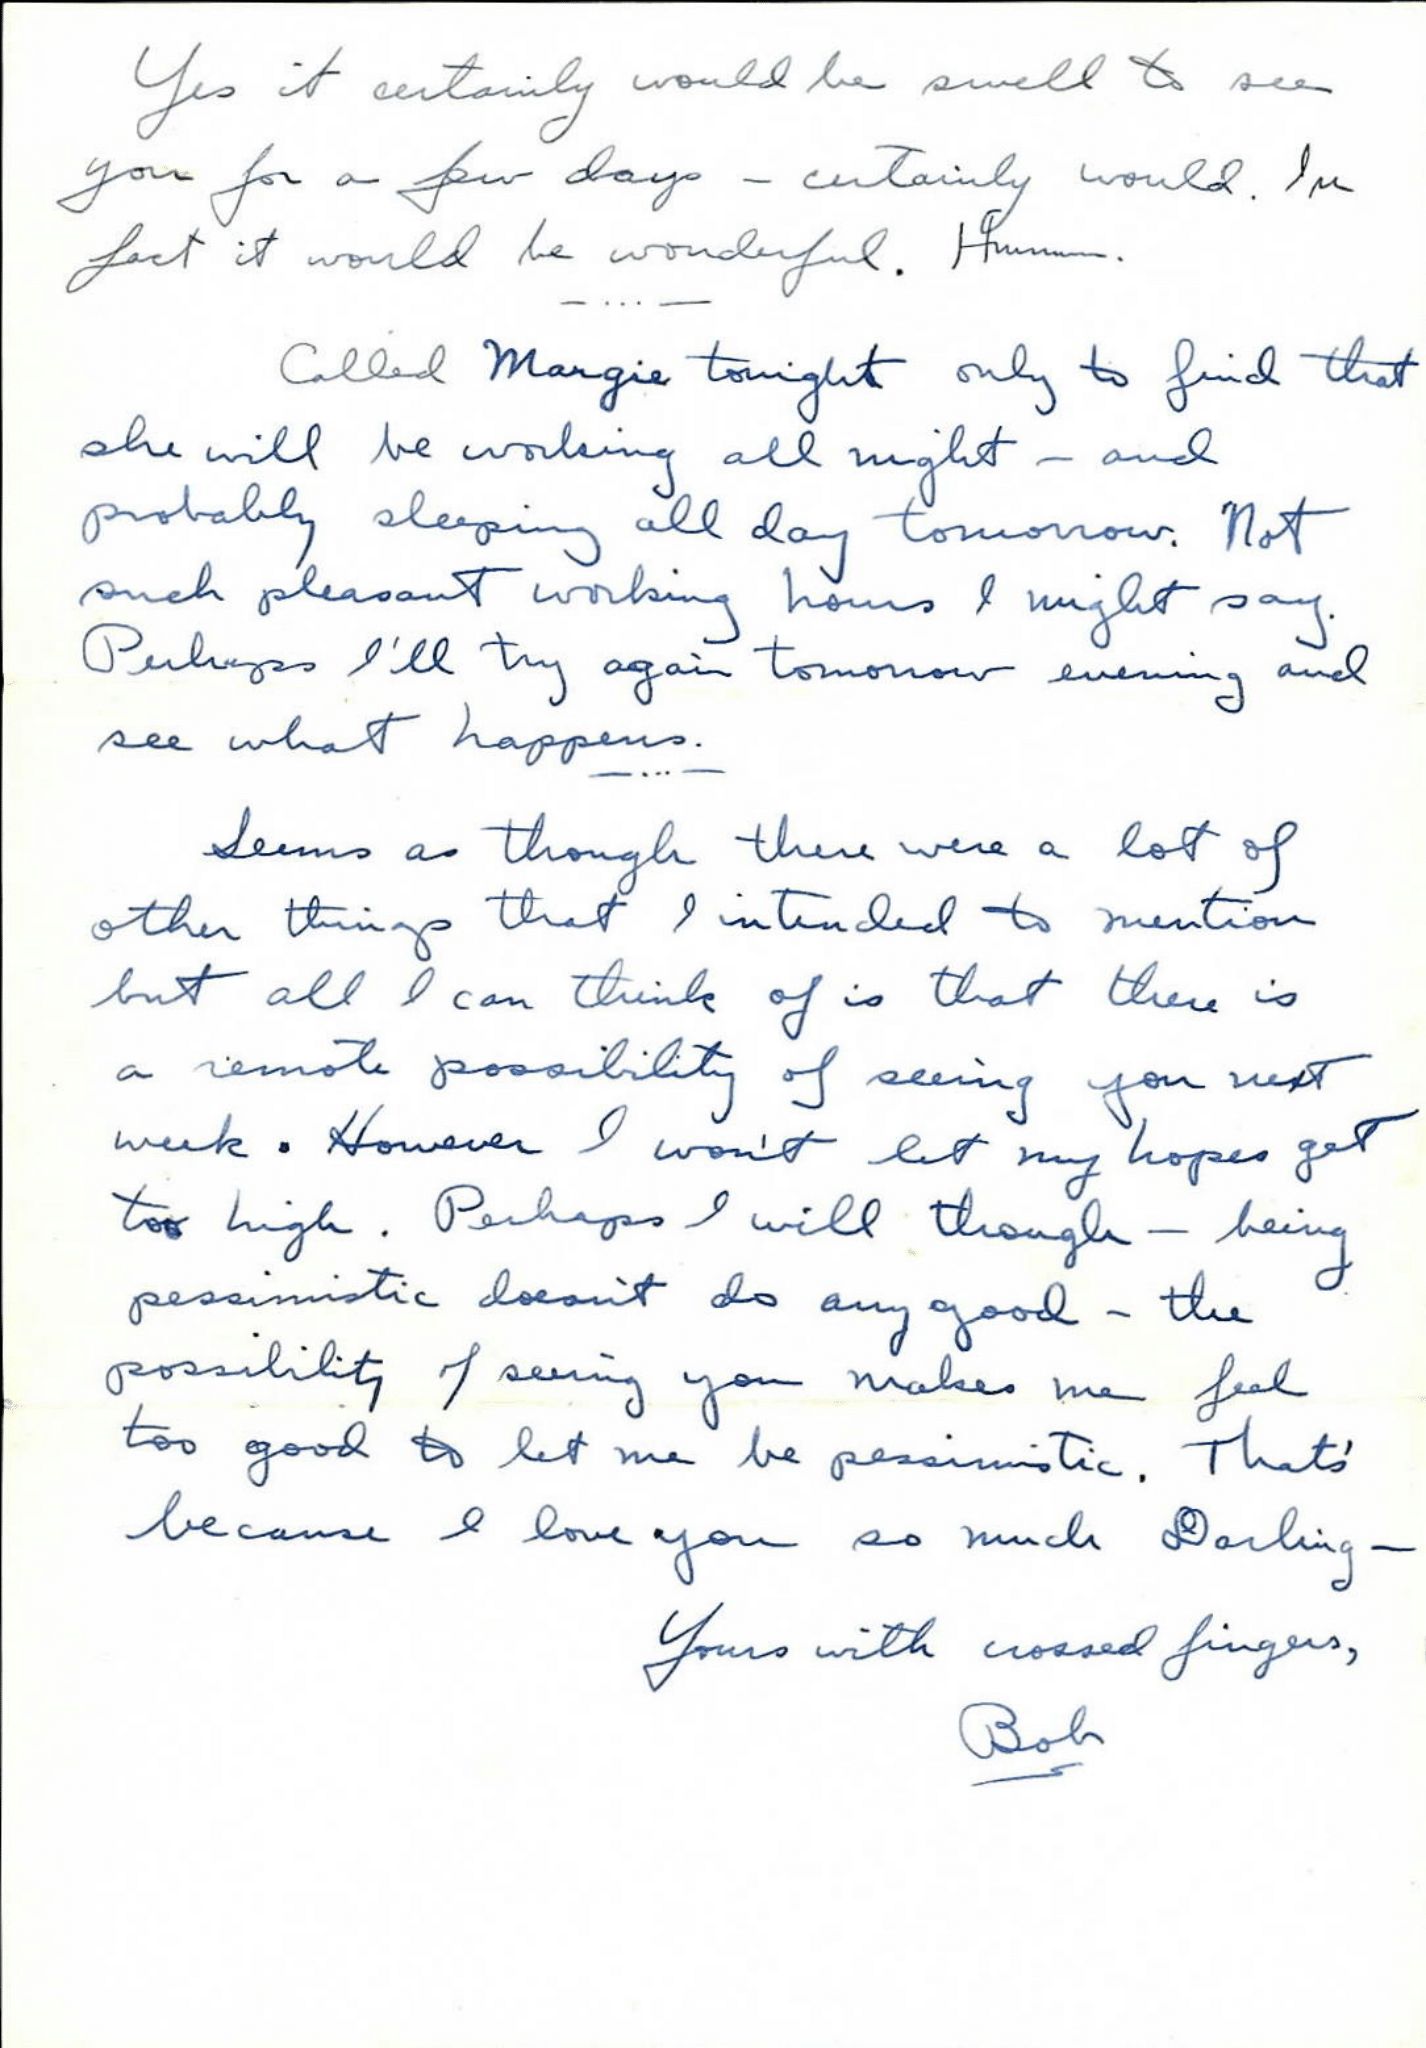 Yes it certainly would be swell to see
you for a few days – certainly would. In
fact it would be wonderful. Hmmmm.
— ... —
Called Margie tonight only to find that
she will be working all night – and
probably sleeping all day tomorrow. Not
such pleasant working hours I might say.
Perhaps I'll try again tomorrow evening and
see what happens.
— ... —
Seems as though there were a lot of
other things that I intended to mention
but all I can think of is that there is
a remote possibility of seeing you next
week. However I won't let my hopes get
too high. Perhaps I will though – being
pessimistic doesn't do any good – the
possibility of seeing you makes me feel
too good to let me be pessimistic. That's
because I love you so much Darling –
Yours with crossed fingers,
Bob